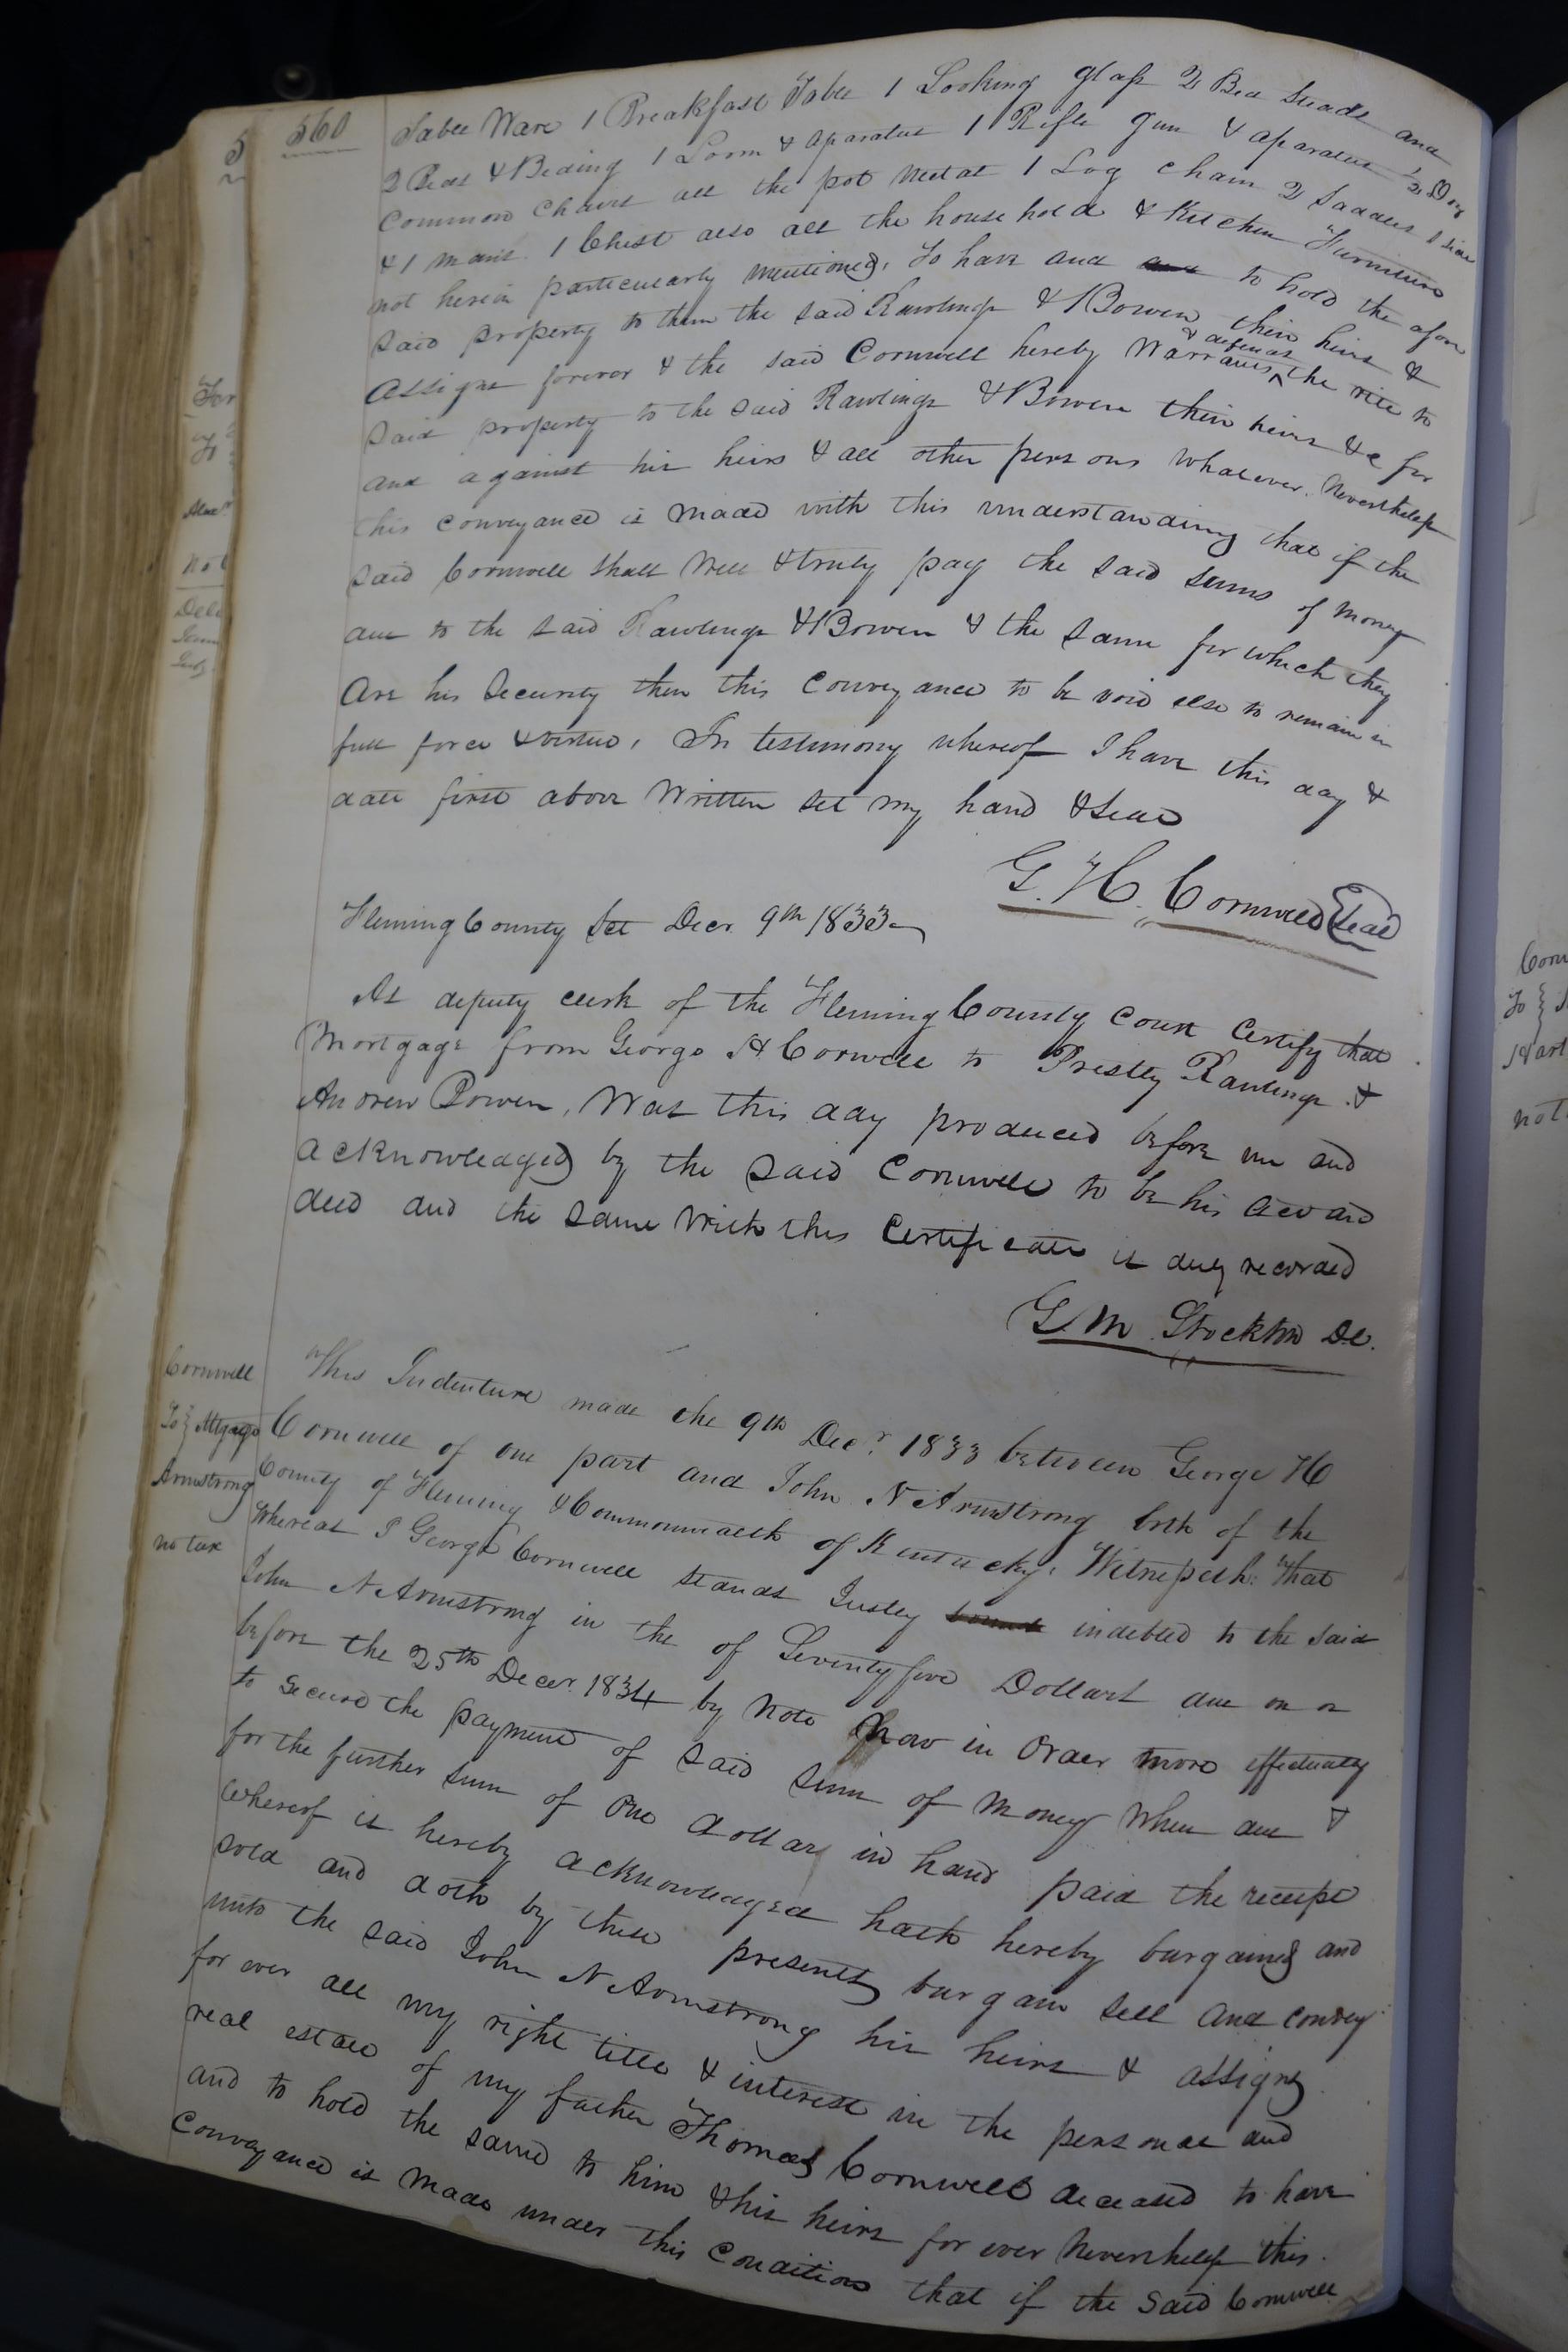 560
Table Ware 1 Breakfast Table 1 Looking glass 2 Bed Steads and
2 Beds & Beding 1 Loom & aparatus 1 Rifle gun & aparatus 1/2 Doz
Common Chairs all the pot Metal 1 Log Chain 2 Saddles 1
& 1 mans. 1 Chest also all the household & Kitchen Furniture
not herein particularly mentioned, To have and to hold the afore
said property to them the said Rawlings & Bowen their heirs &
assigns forever & the said Cornwell hereby Warrants & defends the title to
said property to the said Rawlings & Bowen their heirs &c for
and against his heirs & all other persons whatever. Nevertheless
this conveyance is made with this understanding that if the
said Cornwell shall Well & truly pay the said sums of money
due to the said Rawlings & Bowen & the same for which they
are his Security then this Conveyance to be void else to remain in
full force & virtue, In testimony whereof I have this day &
date first above Written set my hand & Seal
G. H. Cornwell Seal
Fleming County Sct Decr. 9th 1833
As deputy clerk of the Fleming County Court Certify that
Mortgage from George H Cornwell to Presley Rawlings &
Andrew Bowen, Was this day produced before me and
acknowledged by the said Cornwell to be his act and
deed and the same With this Certificate is duly recorded
G. M. Stockton D.C.
Cornwell
To } Mtgage
Armstrong
no tax
This Indenture made the 9th Decr. 1833 between George H
Cornwell of one part and John N Armstrong both of the
County of Fleming & Commonwealth of Kentucky, Witnesseth: That
Whereas I George Cornwell stands Justly indebted to the said
John N Armstrong in the of Seventy five Dollars due on or
before the 25th Decer. 1834 by Note Now in Order more effectually
to secure the payment of said sum of money When due &
for the further sum of One dollar in hand paid the receipt
whereof is hereby acknowledged hath hereby bargained and
sold and doth by these presents bargain sell and convey
unto the said John N Armstrong his heirs & assigns
for ever all my right title & interest in the personal and
real estate of my father Thomas Cornwell deceased to have
and to hold the same to him & his heirs for ever Nevertheless this
Conveyance is Made under this Condition that if the said Cornwell